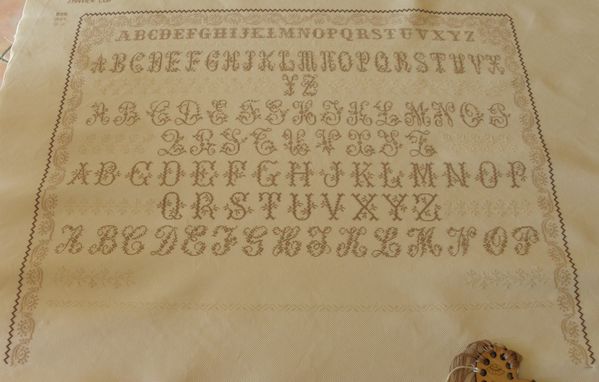 ABCDEFGHIJKLMNOPQRSTUVXYZ
ABCDEFGHIJKLMNOPQRSTUVX
YZ
ABCDEFGHIJKLMNOS
QRSTUVXYZ
ABCDEFGHIJKLMNOP
QRSTUVXYZ
ABCDEFGHIJKLMNOP